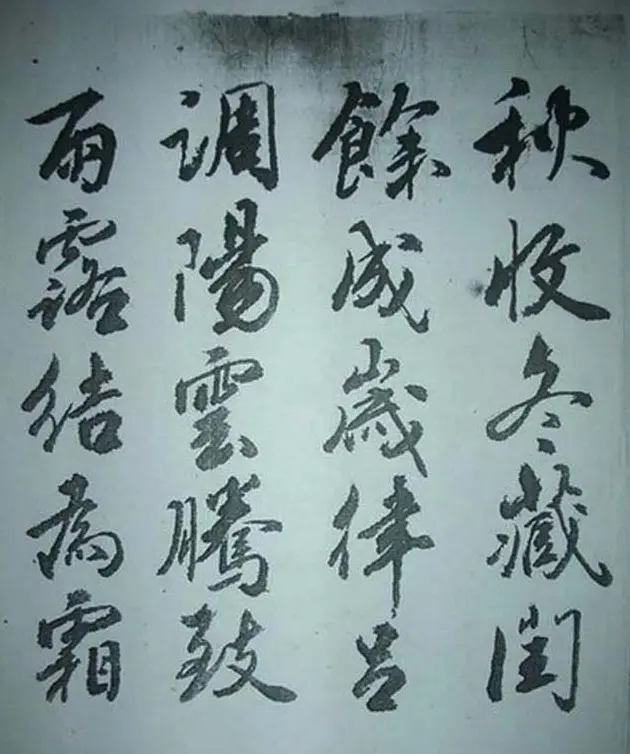 秋收冬藏閏
餘成歲律呂
調陽雲騰致
雨露結為霜